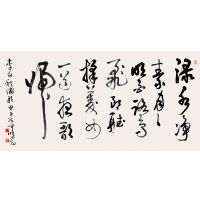 渌水净
素月々
明白鹭
飞郎听
採菱女
一道夜歌
归
李白秋浦歌